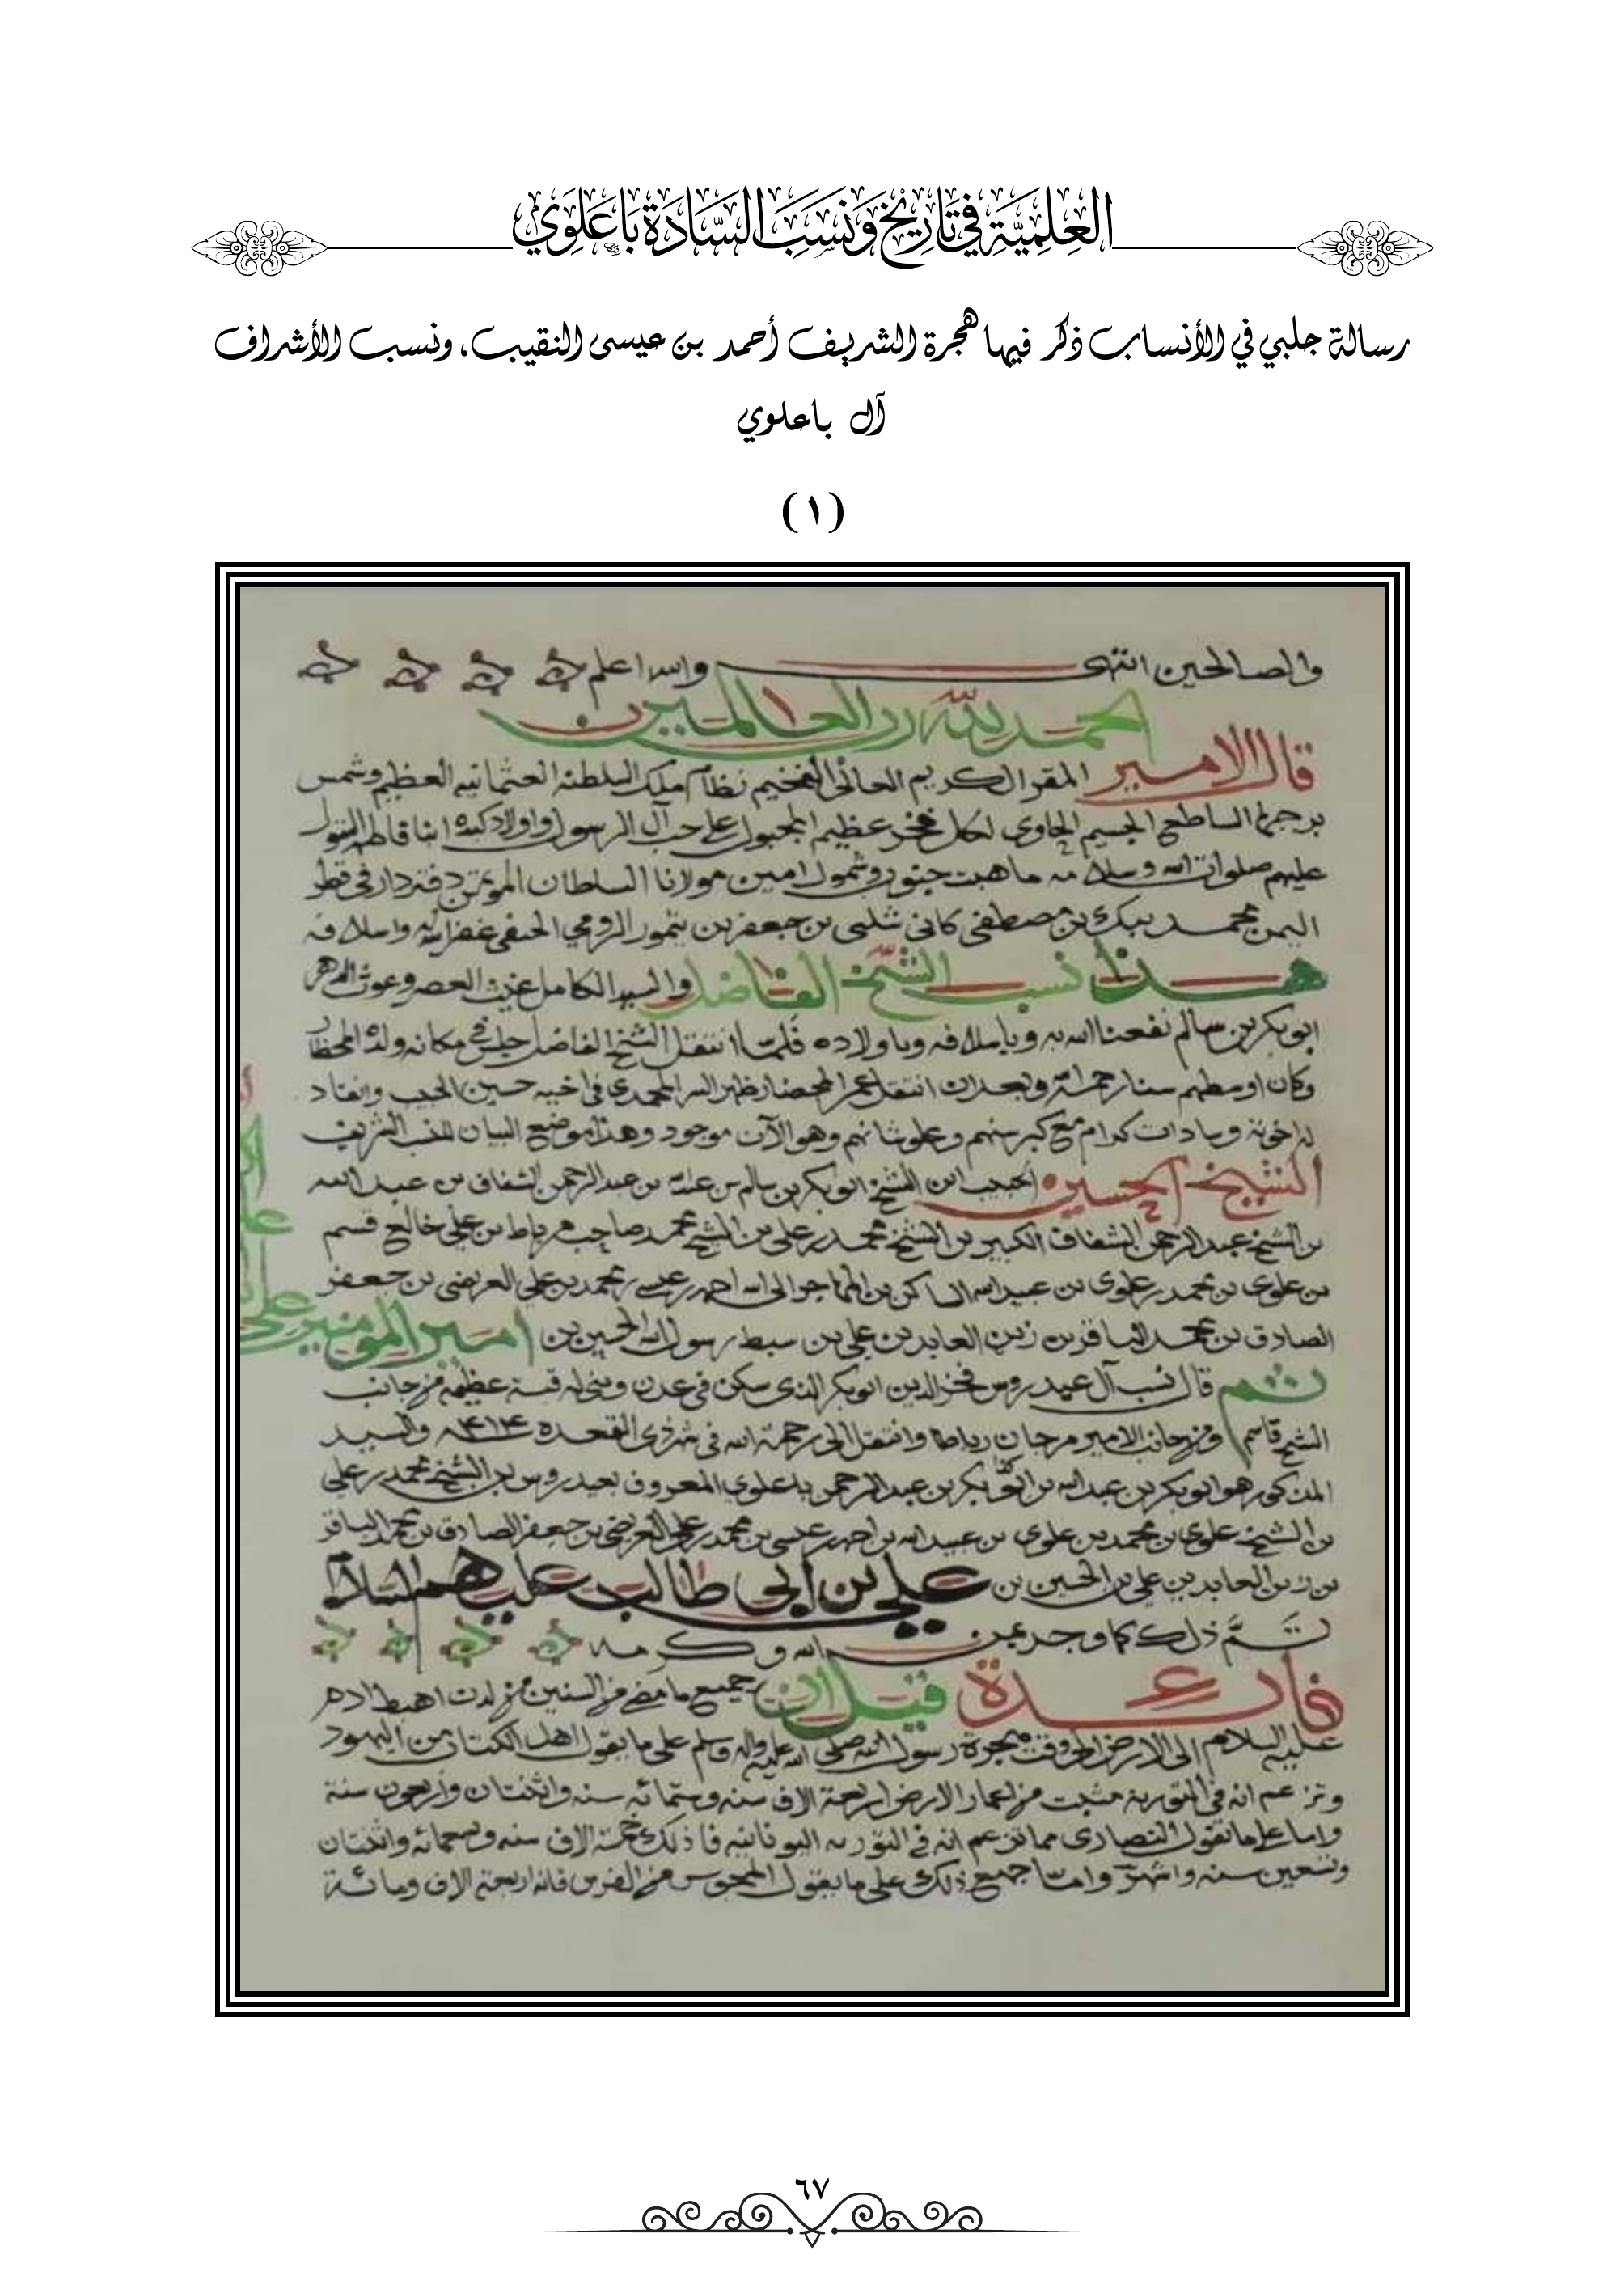 العِلمِيَّة فِي تَارِيخ وَنَسَب السَّادَة بَاعَلَوِي
رسالة جلبي في الأنساب ذكر فيها هجرة الشريف أحمد بن عيسى النقيب، ونسب الأشراف
آل باعلوي
(١)
والصالحين انتهى والله اعلم
الحمد لله رب العالمين
قال الامير المقر الكريم العالى الفخيم نظام ملك السلطنه العثمانيه العظيم وشمس
برجها الساطع الجسيم الحاوى لكل فخر عظيم المجبول على حب آل الرسول واولاد ابنا فاطم البتول
عليهم صلوات الله وسلامه ما هبت جنوب وشمول امين مولانا السلطان المؤتمن دفتردار فى قطر
اليمن محمد بيك بن مصطفى كانى شلبى بن جعفر بن تيمور الرومي الحنفى غفر الله له واسلافه
هذا نسب الشيخ الفاضل والسيد الكامل غيث العصر وغوث الدهر
ابو بكر بن سالم نفعنا الله به وباسلافه وباولاده فلما انتقل الشيخ الفاضل جلس فى مكانه ولده المحظار
وكان اوسطهم سنا رحمه الله وبعد ان انتقل عمر المحضار ظهر السر المحمدى فى اخيه حسين الحبيب وانقاد
له اخوته وسادات كرام مع كبر سنهم وعلو شانهم وهو الآن موجود وهذا موضع البيان للنسب الشريف
الشيخ الحسين الحبيب ابن الشيخ ابو بكر بن سالم بن عبد الله بن عبد الرحمن الشقاف بن عبد الله
بن الشيخ عبد الرحمن الشقاف الكبير بن الشيخ محمد بن على بن الشيخ محمد صاحب مرباط بن على خالع قسم
بن علوى بن محمد بن علوى بن عبيد الله الساكن بن المهاجر الى الله احمد بن عيسى بن محمد بن على العريضى بن جعفر
الصادق بن محمد الباقر بن زين العابدين بن على بن سبط رسول الله الحسين بن امير المومنين على
ثم قال نسب آل عيدروس فخر الدين ابو بكر الذى سكن فى عدن وبنى له قبة عظيمه من جانب
الشيخ قاسم ومن جانب الامير مرجان رباطا وانتقل الى رحمة الله فى شهر ذى القعده سنه ٩١٤ والسيد
المذكور هو ابو بكر بن عبد الله بن ابو بكر بن عبد الرحمن باعلوي المعروف بعيدروس بن الشيخ محمد بن على
بن الشيخ علوى بن محمد بن علوى بن عبيد الله بن احمد بن عيسى بن محمد بن على العريضى بن جعفر الصادق بن محمد الباقر
بن زين العابدين على بن الحسين بن على بن ابى طالب عليهم السلام
تم ذلك كما وجد بمن الله وكرمه
فائدة قيل ان جميع ما مضى من السنين من لدن اهبط ادم
عليه السلام الى الارض الى وقت هجرة رسول الله صلى الله عليه واله وسلم على ما يقول اهل الكتاب من اليهود
وتزعم انه فى التورية مثبت من اعمار الارض اربعة الاف سنه وستمائه سنه واثنتان واربعون سنة
واما على ما تقول النصارى مما تزعم انه فى التوريه اليونانيه فان ذلك خمسة الاف سنه وتسعمائه واثنتان
وتسعين سنه واشهر واما جميع ذلك على ما يقول المجوس من الفرس فانه اربعة الاف ومائة
٦٧